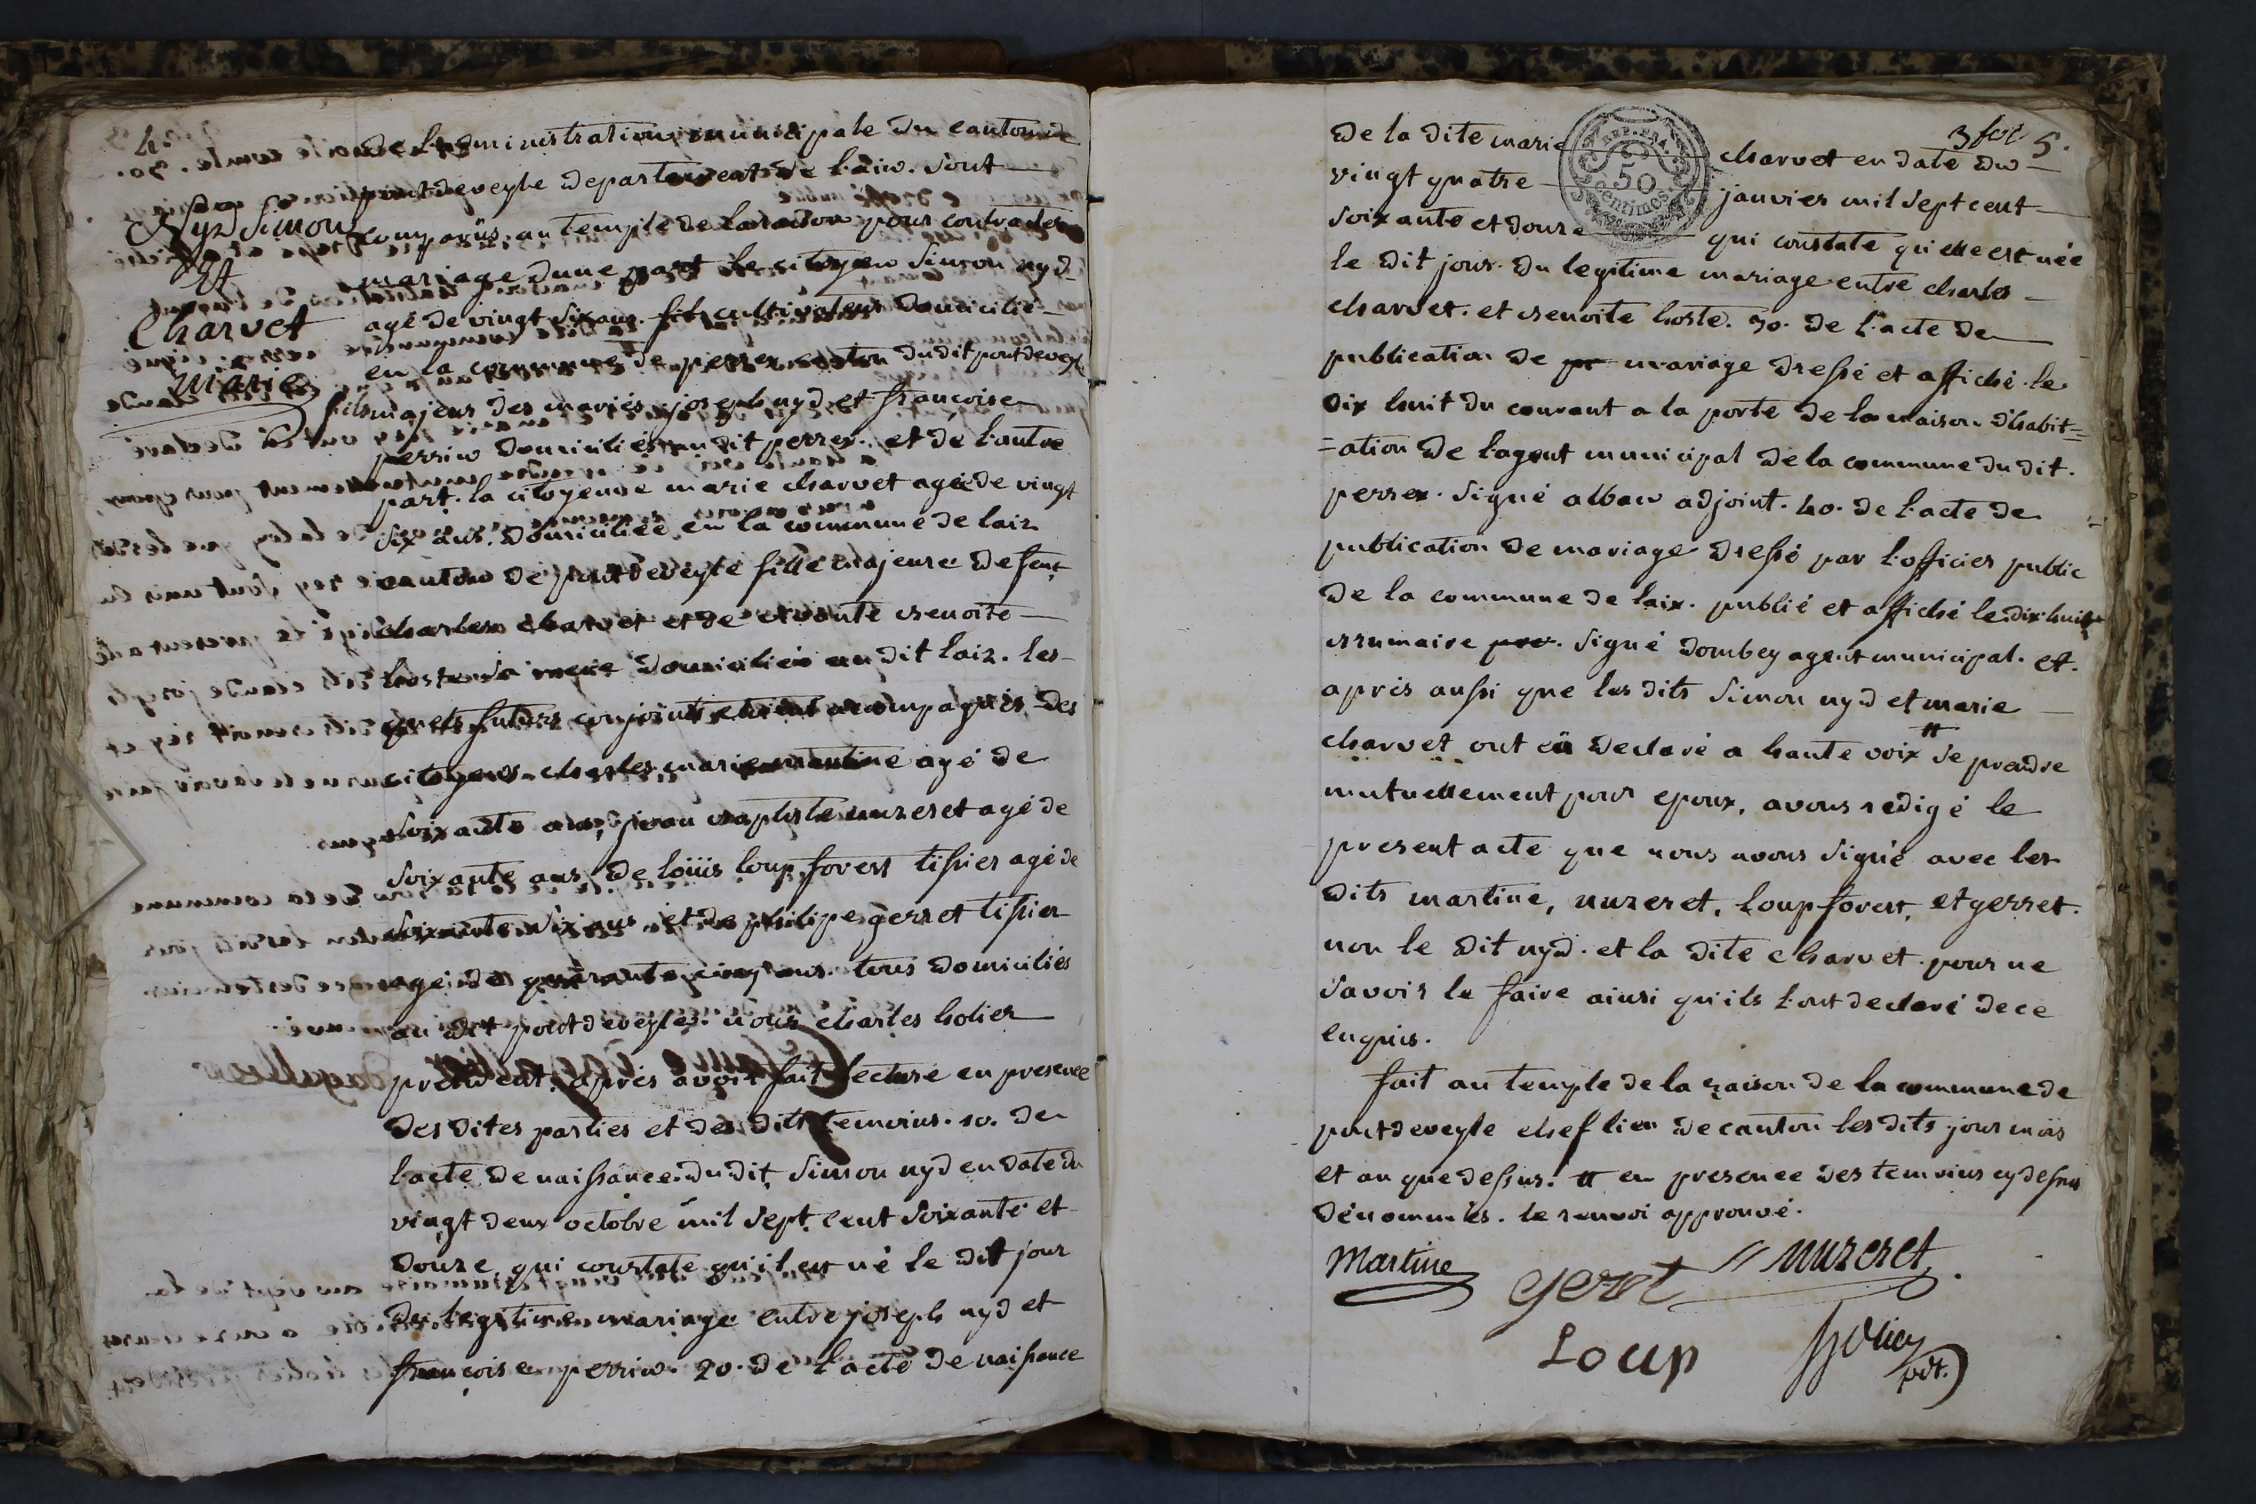 4.
de l'administration municipale du canton de
pontdeveyle departement de l'ain. sont
comparüs au temple de la raison pour contracter
mariage dune part le citoyen Simon nyd
agé de vingt six ans cultivateur domicilié
en la commune de perrex canton du dit pontdeveyle
fils majeur des mariés joseph nyd et francoise
perrin domiciliés au dit perrex. et de l'autre
part. la citoyenne marie charvet agée de vingt
six ans. domiciliée en la commune de laiz
canton de pontdeveyle fille majeure de feu
charles charvet et de benoite
hoste sa mere domiciliée au dit laiz. les
quels futurs conjoints etoient accompagnés des
citoyens charles marie martine agé de
soixante ans, jean baptiste nuzeret agé de
soixante ans, de loüis loup forest tissier agé de
soixante six ans et de philipe gerret tissier
agé de quarante cinq ans. tous domiciliés
au dit pontdeveyle. nous charles holier
president. après avoir fait lecture en presence
des dites parties et des dits temoins. 10. de
l'acte de naissance du dit Simon nyd en date du
vingt deux octobre mil sept cent soixante et
douze, qui constate qu'il est né le dit jour
du legitime mariage entre joseph nyd et
françoise perrin. 20. de l'acte de naissance
Nyd Simon
Et
Charvet
Marie
5.
de la dite marie charvet en date du
vingt quatre janvier mil sept cent
soixante et douze qui constate qu'elle est née
le dit jour du legitime mariage entre charles
charvet. et benoite hoste. 30. de l'acte de
publication de mariage dressé et affiché le
dix huit du courant a la porte de la maison d'habit=
=ation de l'agent municipal de la commune du dit.
perrex. signé alban adjoint. 40. de l'acte de
publication de mariage dressé par l'officier public
de la commune de laix. publié et affiché le dix huit
brumaire signé dombey agent municipal. et.
après aussi que les dits Simon nyd et marie
charvet ont eü declaré a haute voix # se prendre
mutuellement pour epoux, avons redigé le
present acte que nous avons signé avec les
dits martine, nuzeret, loup forest, et gerret.
non le dit nyd. et la dite charvet. pour ne
savoir le faire ainsi qu'ils l'ont declaré de ce
enquis.
fait au temple de la raison de la commune de
pontdeveyle chef lieu de canton les dits jour mois
et an que dessus. # en presence des temoins cy dessus
dénommés. le renvoi approuvé.
Martine
gerret
nuzeret
Loup
holier
pdt.
REP. FRA.
50
Centimes